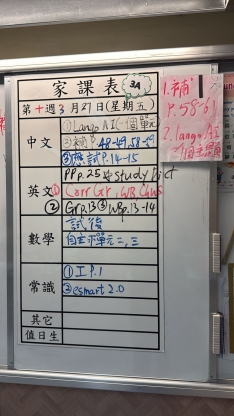 家課表
3A
第十週3月21日(星期五)
中文
①Lango AI(一個單元)
②補P.48-49,58-59
③應試P.14-15
英文
PP.25 & study Dict
① Corr Gr, WB
② Gr p.13 ③ WB p.13-14
數學
試後
自主 單元二,三
常識
①工P.1
②esmart 2.0
其它
值日生
1.補
P.58-61
2.Lango AI